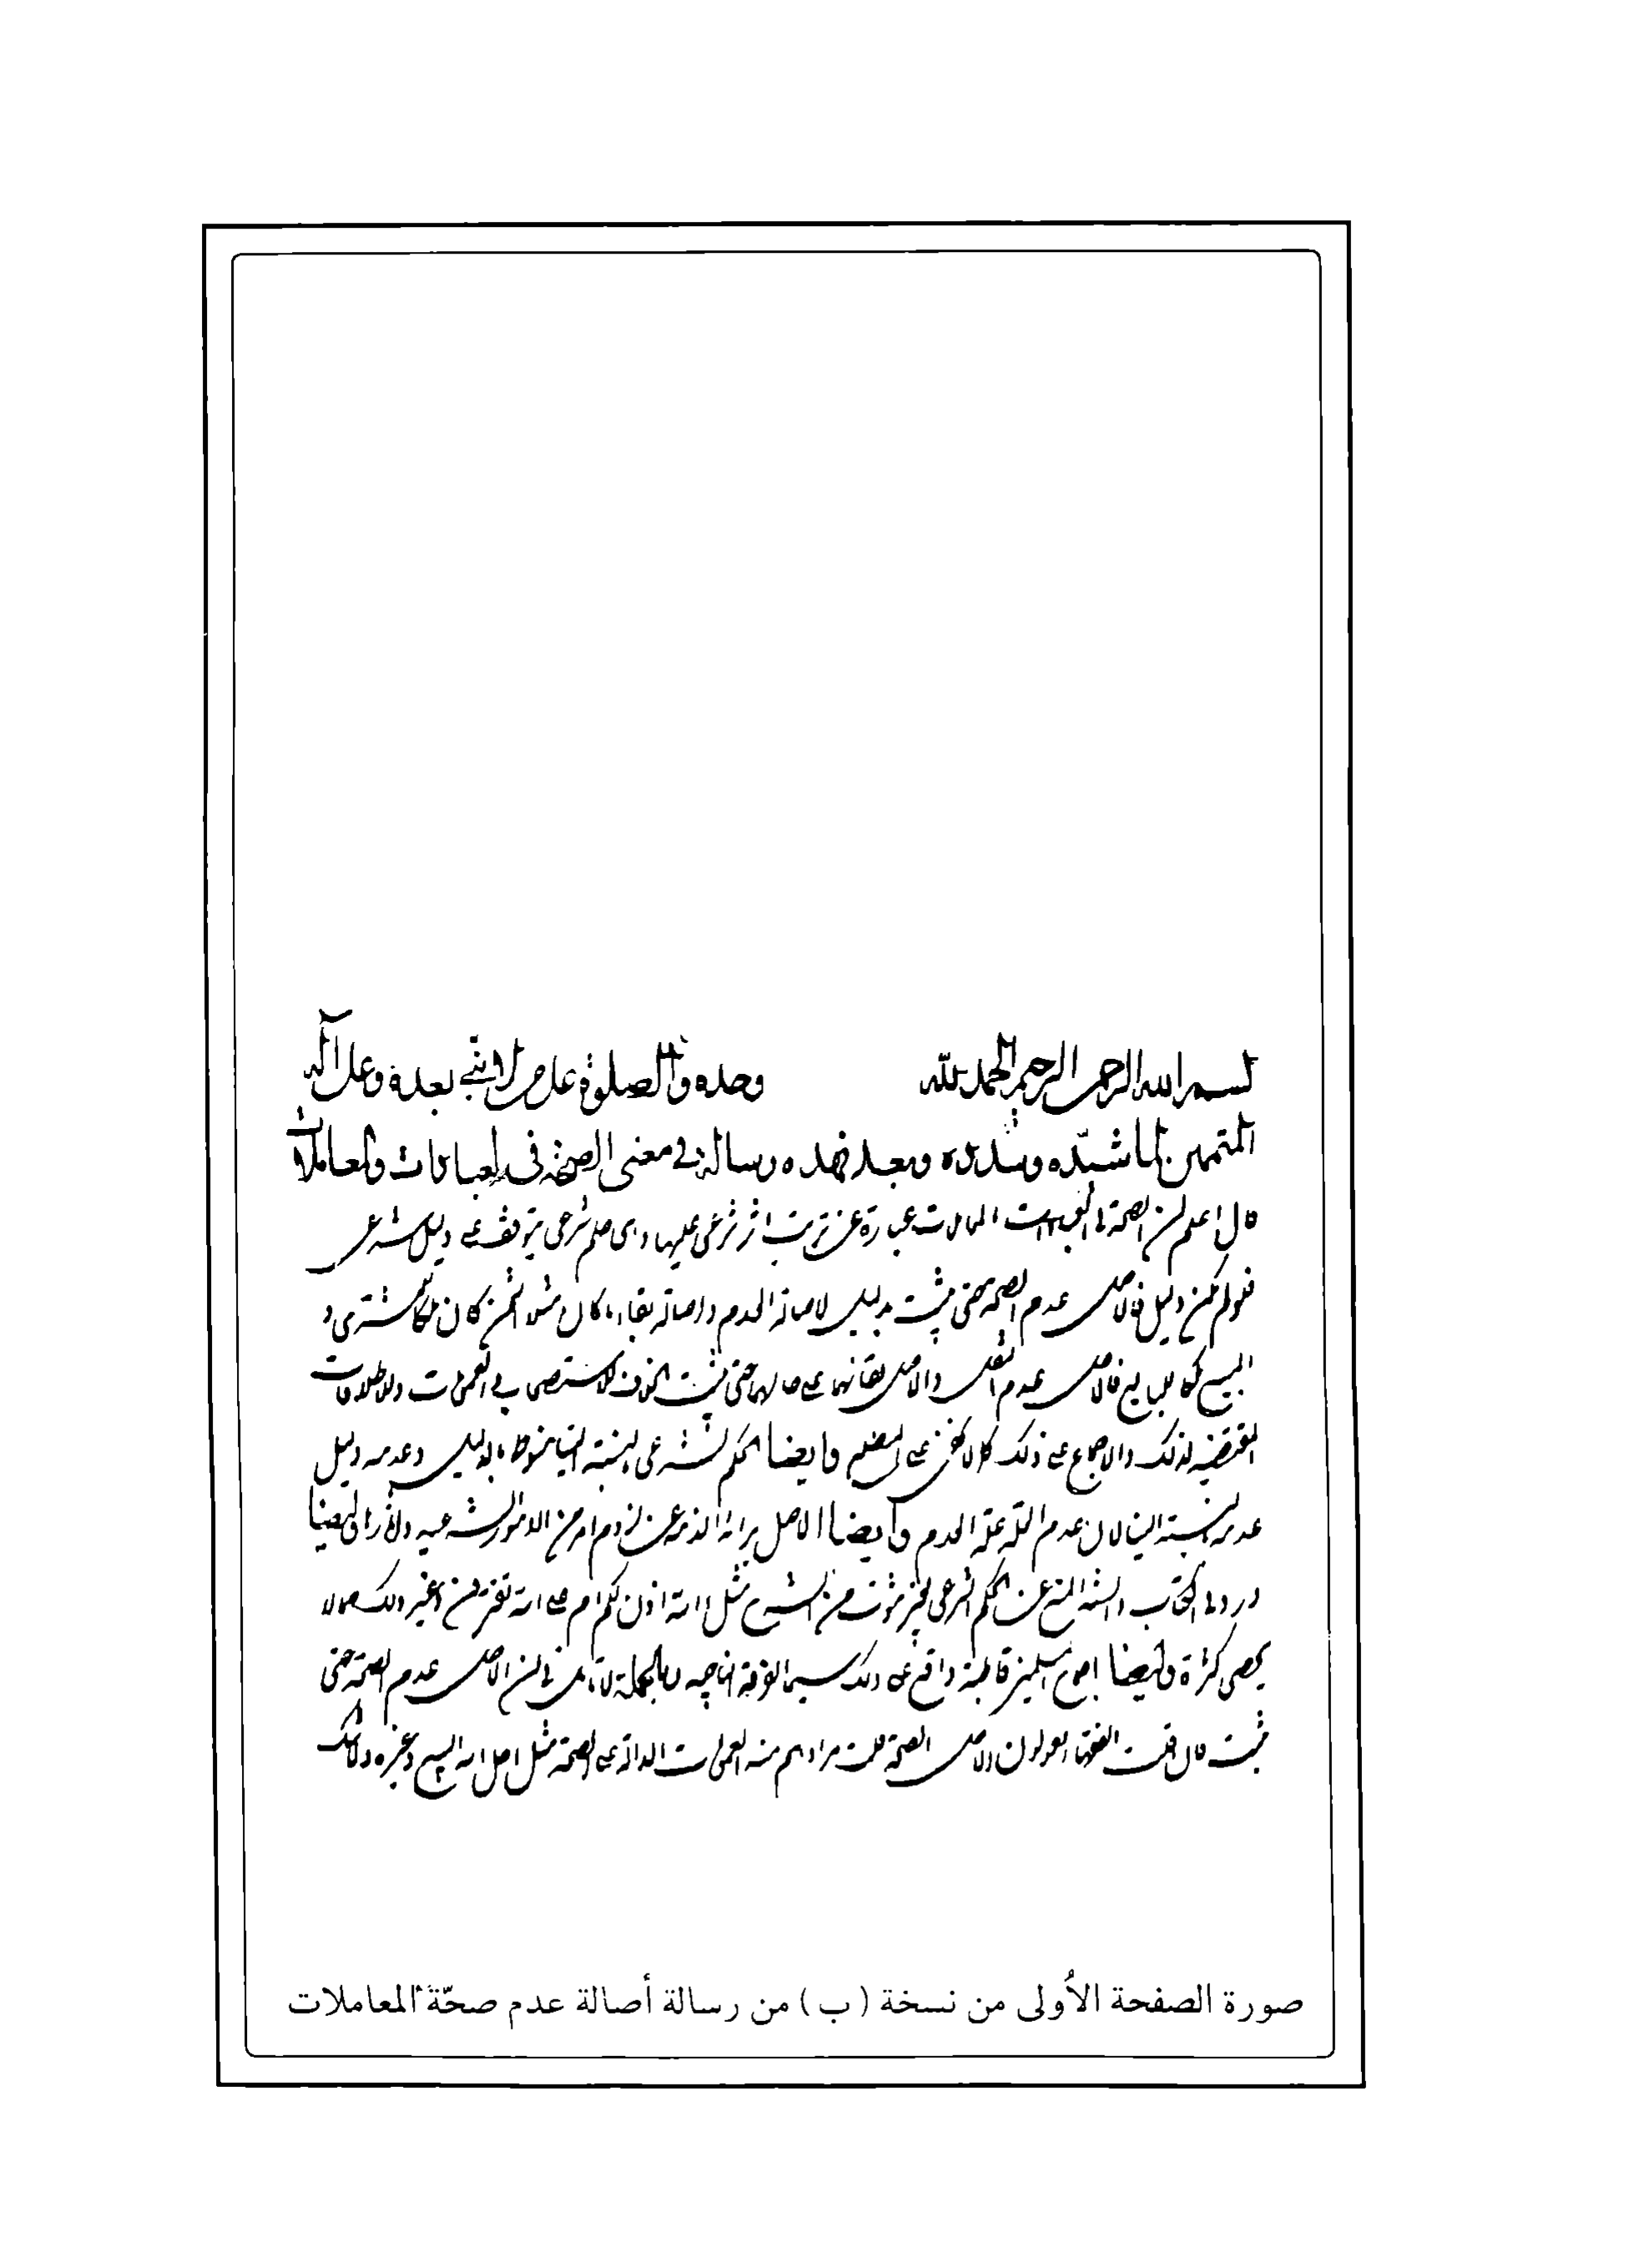 بسم الله الرحمن الرحيم الحمد لله وحده والصلوة على من لا نبي بعده وعلى آله
المتممين لما شيّده وسدده وبعد فهذه رسالة في معنى الصحة في العبادات والمعاملات
قال اعلم ان الصحة في العبادات المعاملات عبارة عن ترتب اثر شرعى عليها وهى حكم شرعى يتوقف على دليل شرعى
فلو لم يكن دليل فالاصل عدم الصحة حتى يثبت بدليل لاصالة العدم واصالة بقاء ما كان مثلا الثمن كان ملكا للمشترى و
المبيع كان للبايع فالاصل عدم النقل والاصل بقائهما على حالهما حتى يثبت الخلاف للاستصحاب والعمومات والاطلاقات
المقتضية لذلك والاجماع على ذلك كما لا يخفى على المطلع وايضا الحكم الشرعى بالنسبة الينا منوط بالدليل وعدمه دليل
عدمه بالنسبة الينا لان عدم العلة علة العدم وايضا الاصل برائة الذمة عن لزوم امر من الامور الشرعية والآثار وايضا
ورد في الكتاب والسنة المنع عن الحكم الشرعى بغير ثبوت من الشرع مثل الله اذن لكم ام على الله تفترون وغير ذلك مما لا
يحصى كثرة وايضا اجماع المسلمين قاطبة واقع على ذلك سيما الفرقة الناجية وبالجملة لا تأمل في ان الاصل عدم الصحة حتى
يثبت فان قلت الفقهاء يقولون الاصل الصحة قلت مرادهم منه العمومات الدالة على الصحة مثل احل الله البيع وغيره ولا شك
صورة الصفحة الأولى من نسخة ( ب ) من رسالة أصالة عدم صحّة المعاملات